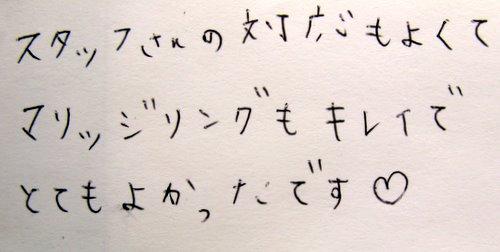 スタッフさんの対応もよくて
マリッジリングもキレイで
とてもよかったです♡